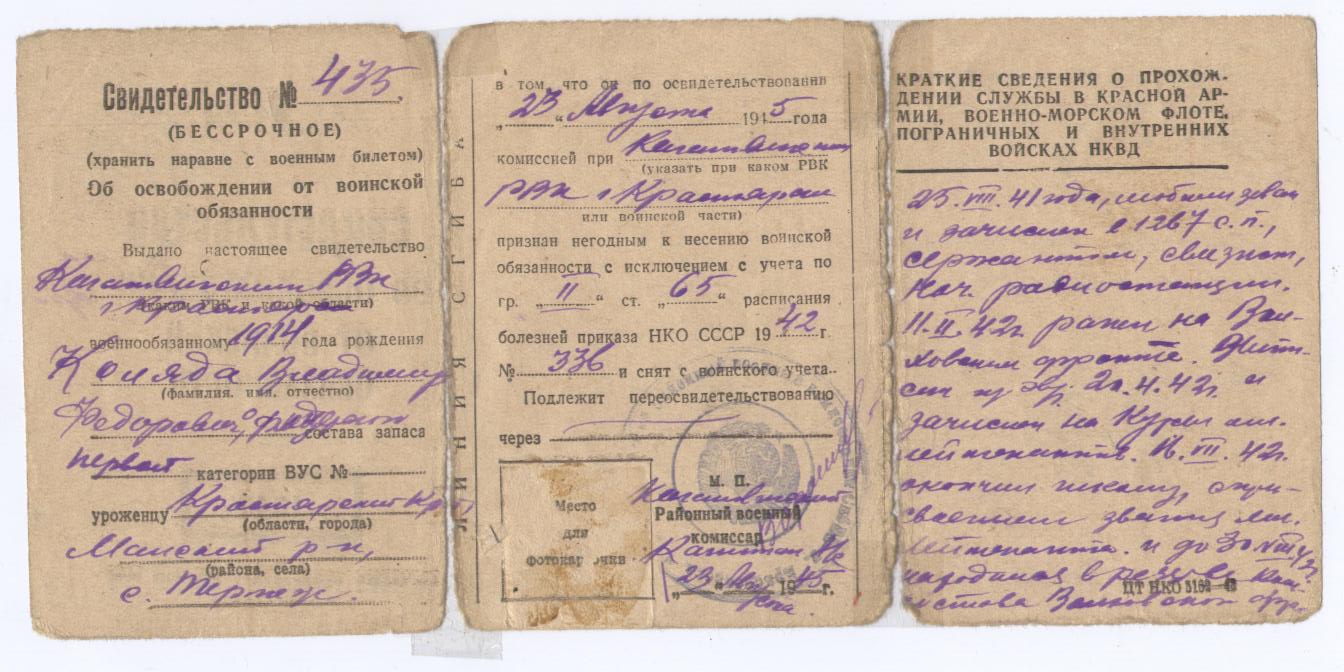 Свидетельство № 435.
(БЕССРОЧНОЕ)
(хранить наравне с военным билетом)
Об освобождении от воинской
обязанности
Выдано настоящее свидетельство
РВК
(каким РВК и какой области)
военнообязанному 1914 года рождения
Коляда Владимир
(фамилия, имя, отчество)
состава запаса
первой категории ВУС №
уроженцу Красноярский кр
(области, города)
Манский р-н,
(района, села)
с.
ЛИНИЯ СГИБА
в том, что он по освидетельствовании
„23“ Августа 1945 года
комиссией при
(указать при каком РВК
РВК г. Красноярск
или воинской части)
признан негодным к несению воинской
обязанности с исключением с учета по
гр. „II“ ст. „65“ расписания
болезней приказа НКО СССР 1942 г.
№ 336 и снят с воинского учета.
Подлежит переосвидетельствованию
через
Место
для
фотокарточки
М. П.
Районный военный
комиссар
Капитан
„23“ 1945 г.
КРАТКИЕ СВЕДЕНИЯ О ПРОХОЖ-
ДЕНИИ СЛУЖБЫ В КРАСНОЙ АР-
МИИ, ВОЕННО-МОРСКОМ ФЛОТЕ,
ПОГРАНИЧНЫХ И ВНУТРЕННИХ
ВОЙСКАХ НКВД
25.VIII.41 года, мобилизован
и зачислен в 1267 с.п.,
сержантом, связист,
нач. радиостанции.
11.II.42г. ранен на Вол-
ховском фронте.
2.4.42г. и
зачислен на Курсы мл.
лейтенанта. 16.VII.42г.
окончил школу, прис-
воением звания мл.
лейтенанта. и до 30
находился в резерве ком-
состава Волховского фр.
ЦТ НКО 5162